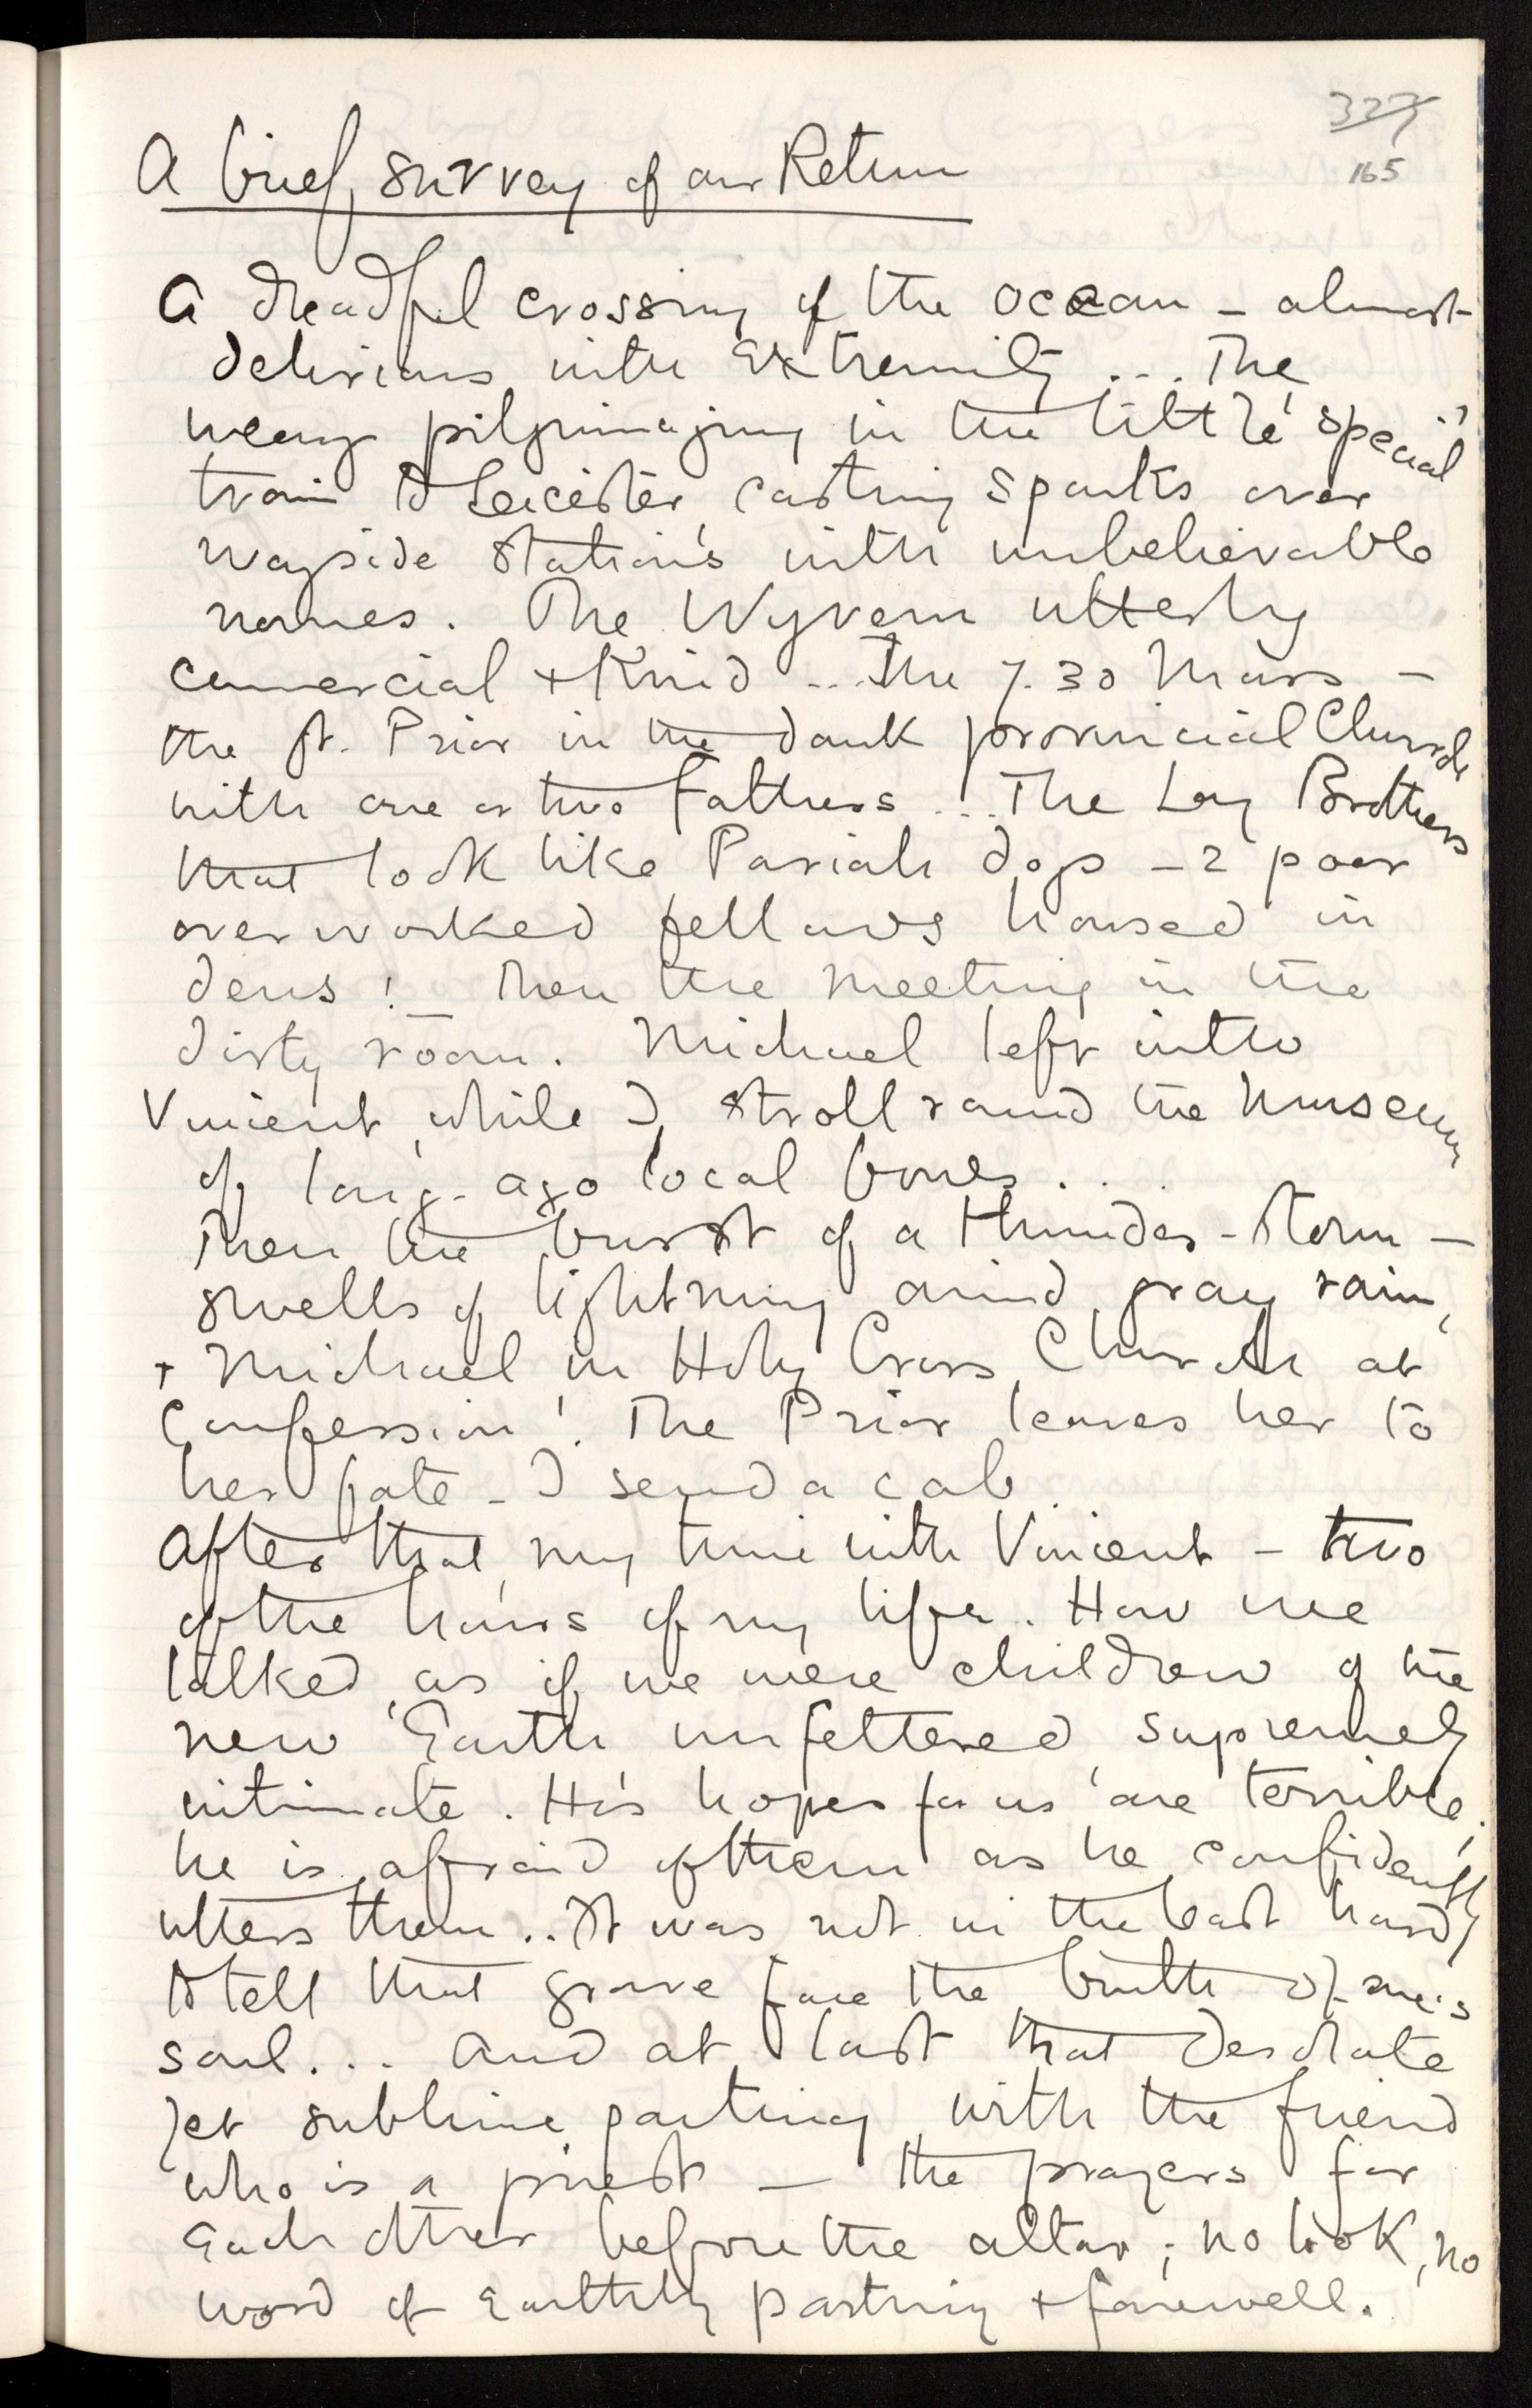 327
165
A brief survey of our Return
A dreadful crossing of the ocean – almost
delirious with extremity ... The
weary pilgrimaging in the little "special"
train to Leicester casting sparks over
wayside stations with unbelievable
names. The Wyvern utterly
comercial + kind ... The 7.30 Mass –
the ft. Prior in the dank provincial Church
with one or two Fathers ... The Lay Brothers
that look like Pariah dogs – 2 poor
overworked fellows housed in
dens! Then the meeting in the
dirty room. Michael left with
Vincent while I stroll round the Museum
of long-ago local bones ...
Then the burst of a thunder-storm –
swells of lightning amid gray rain,
+ Michael in Holy Cross Church at
Confession! The Prior leaves her to
her fate – I send a cab.
After that my time with Vincent – two
of the hours of my life. How we
talked as if we were children of the
new Earth unfettered, supremely
intimate. His hopes for us are terrible;
he is afraid of them as he confidently
utters them .. It was not in the least hard
to tell that grave face the truth of one's
soul ... And at last that desolate
yet sublime parting with the friend
who is a priest – the prayers for
each other before the altar; no look, no
word of earthly parting + farewell.